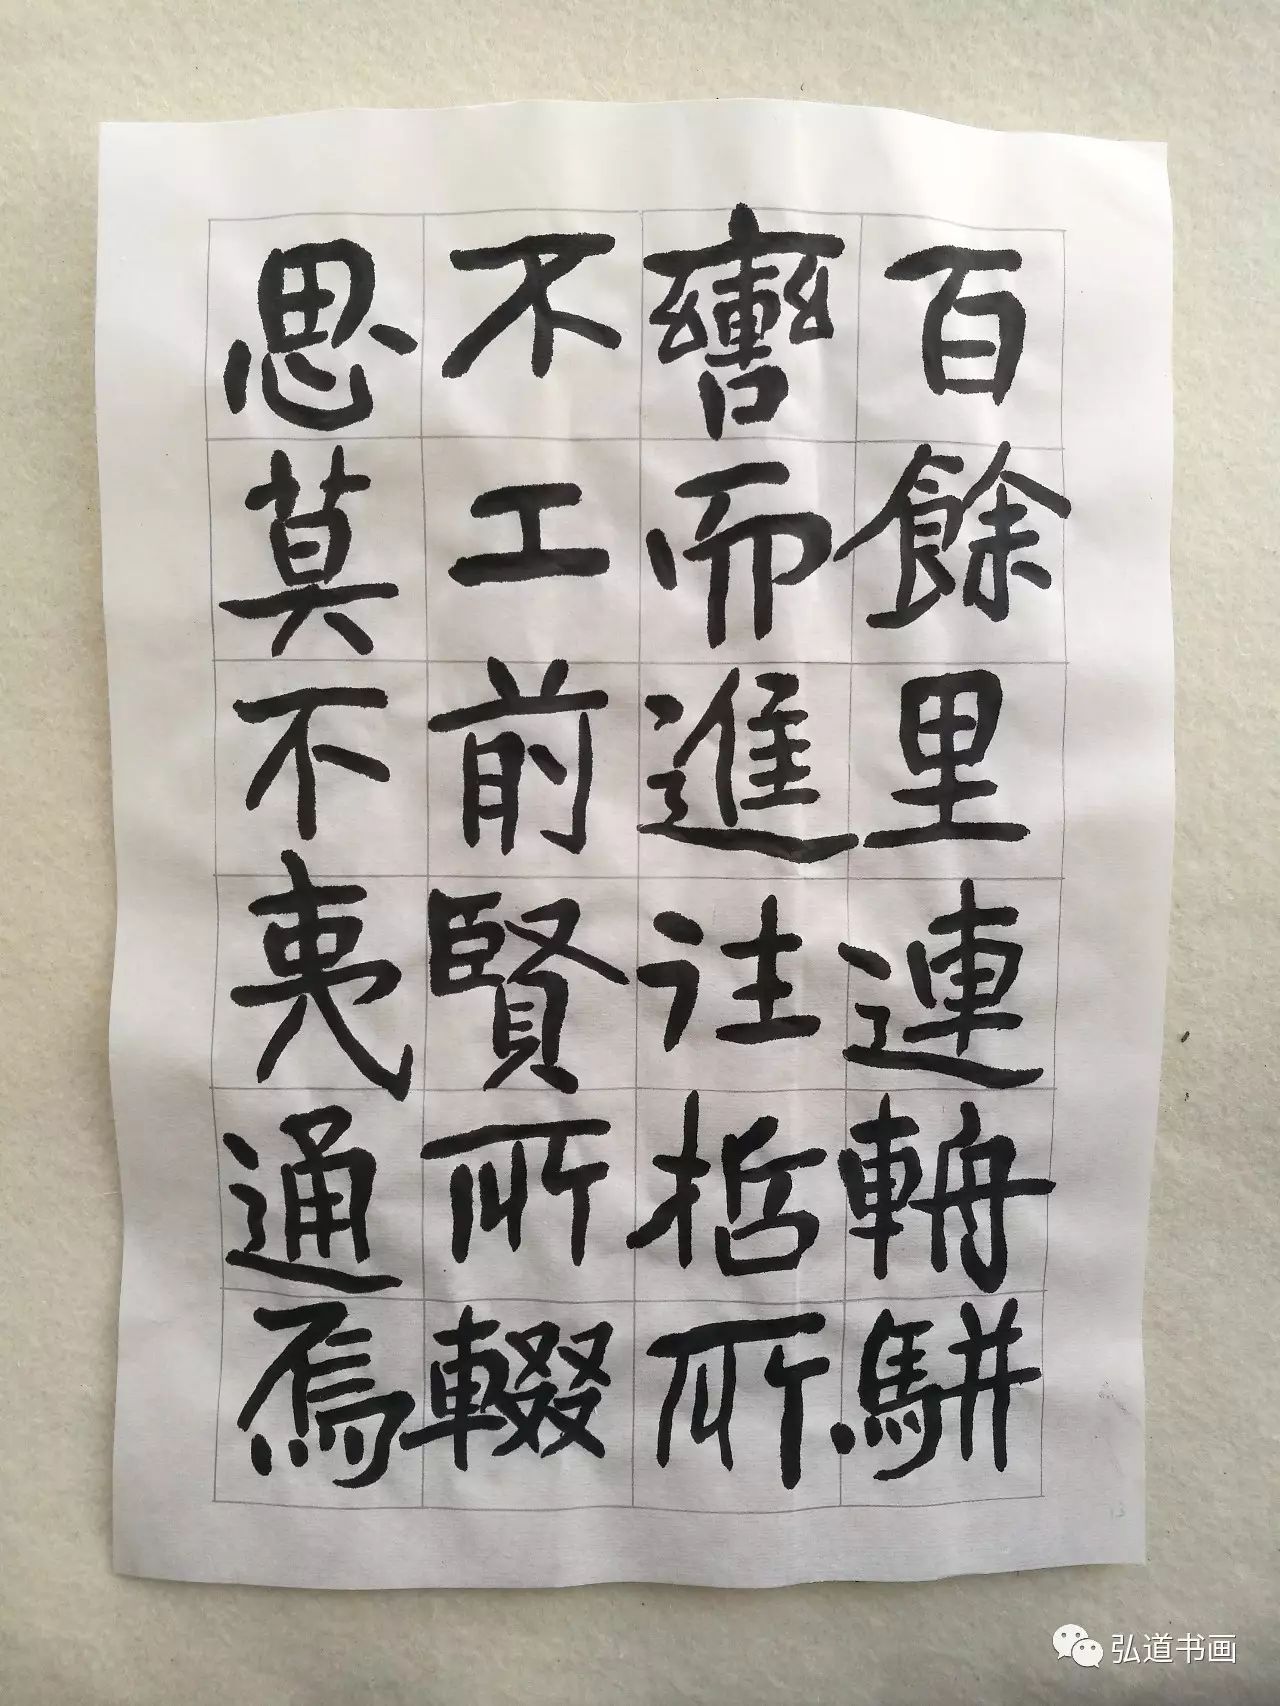 百餘里連輈駢
轡而進往哲所
不工前賢所輟
思莫不夷通焉
弘道书画